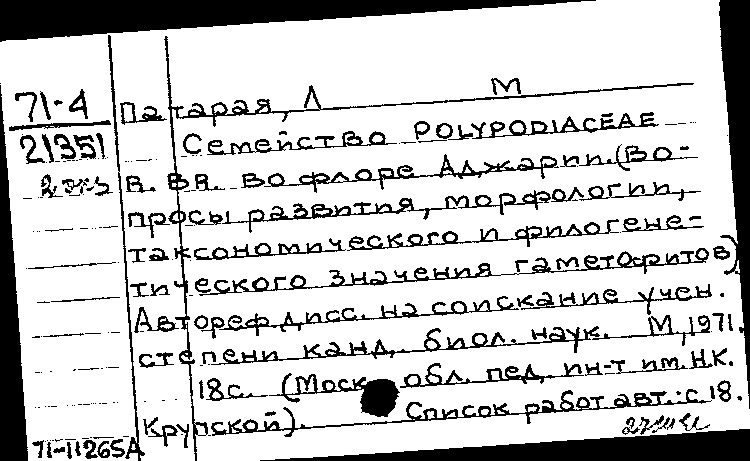 71-4 Патарая, Л М
21351 Семейство POLYPODIACEAE
2 экз R. BR. во флоре Аджарии. (Во-
просы развития, морфологии,
таксономического и филогене-
тического значения гаметофитов)
Автореф. дисс. на соискание учен.
степени канд. биол. наук. М, 1971.
18с. (Моск обл. пед. ин-т им. Н.К.
Крупской). Список работ авт.: с. 18.
71-11265А